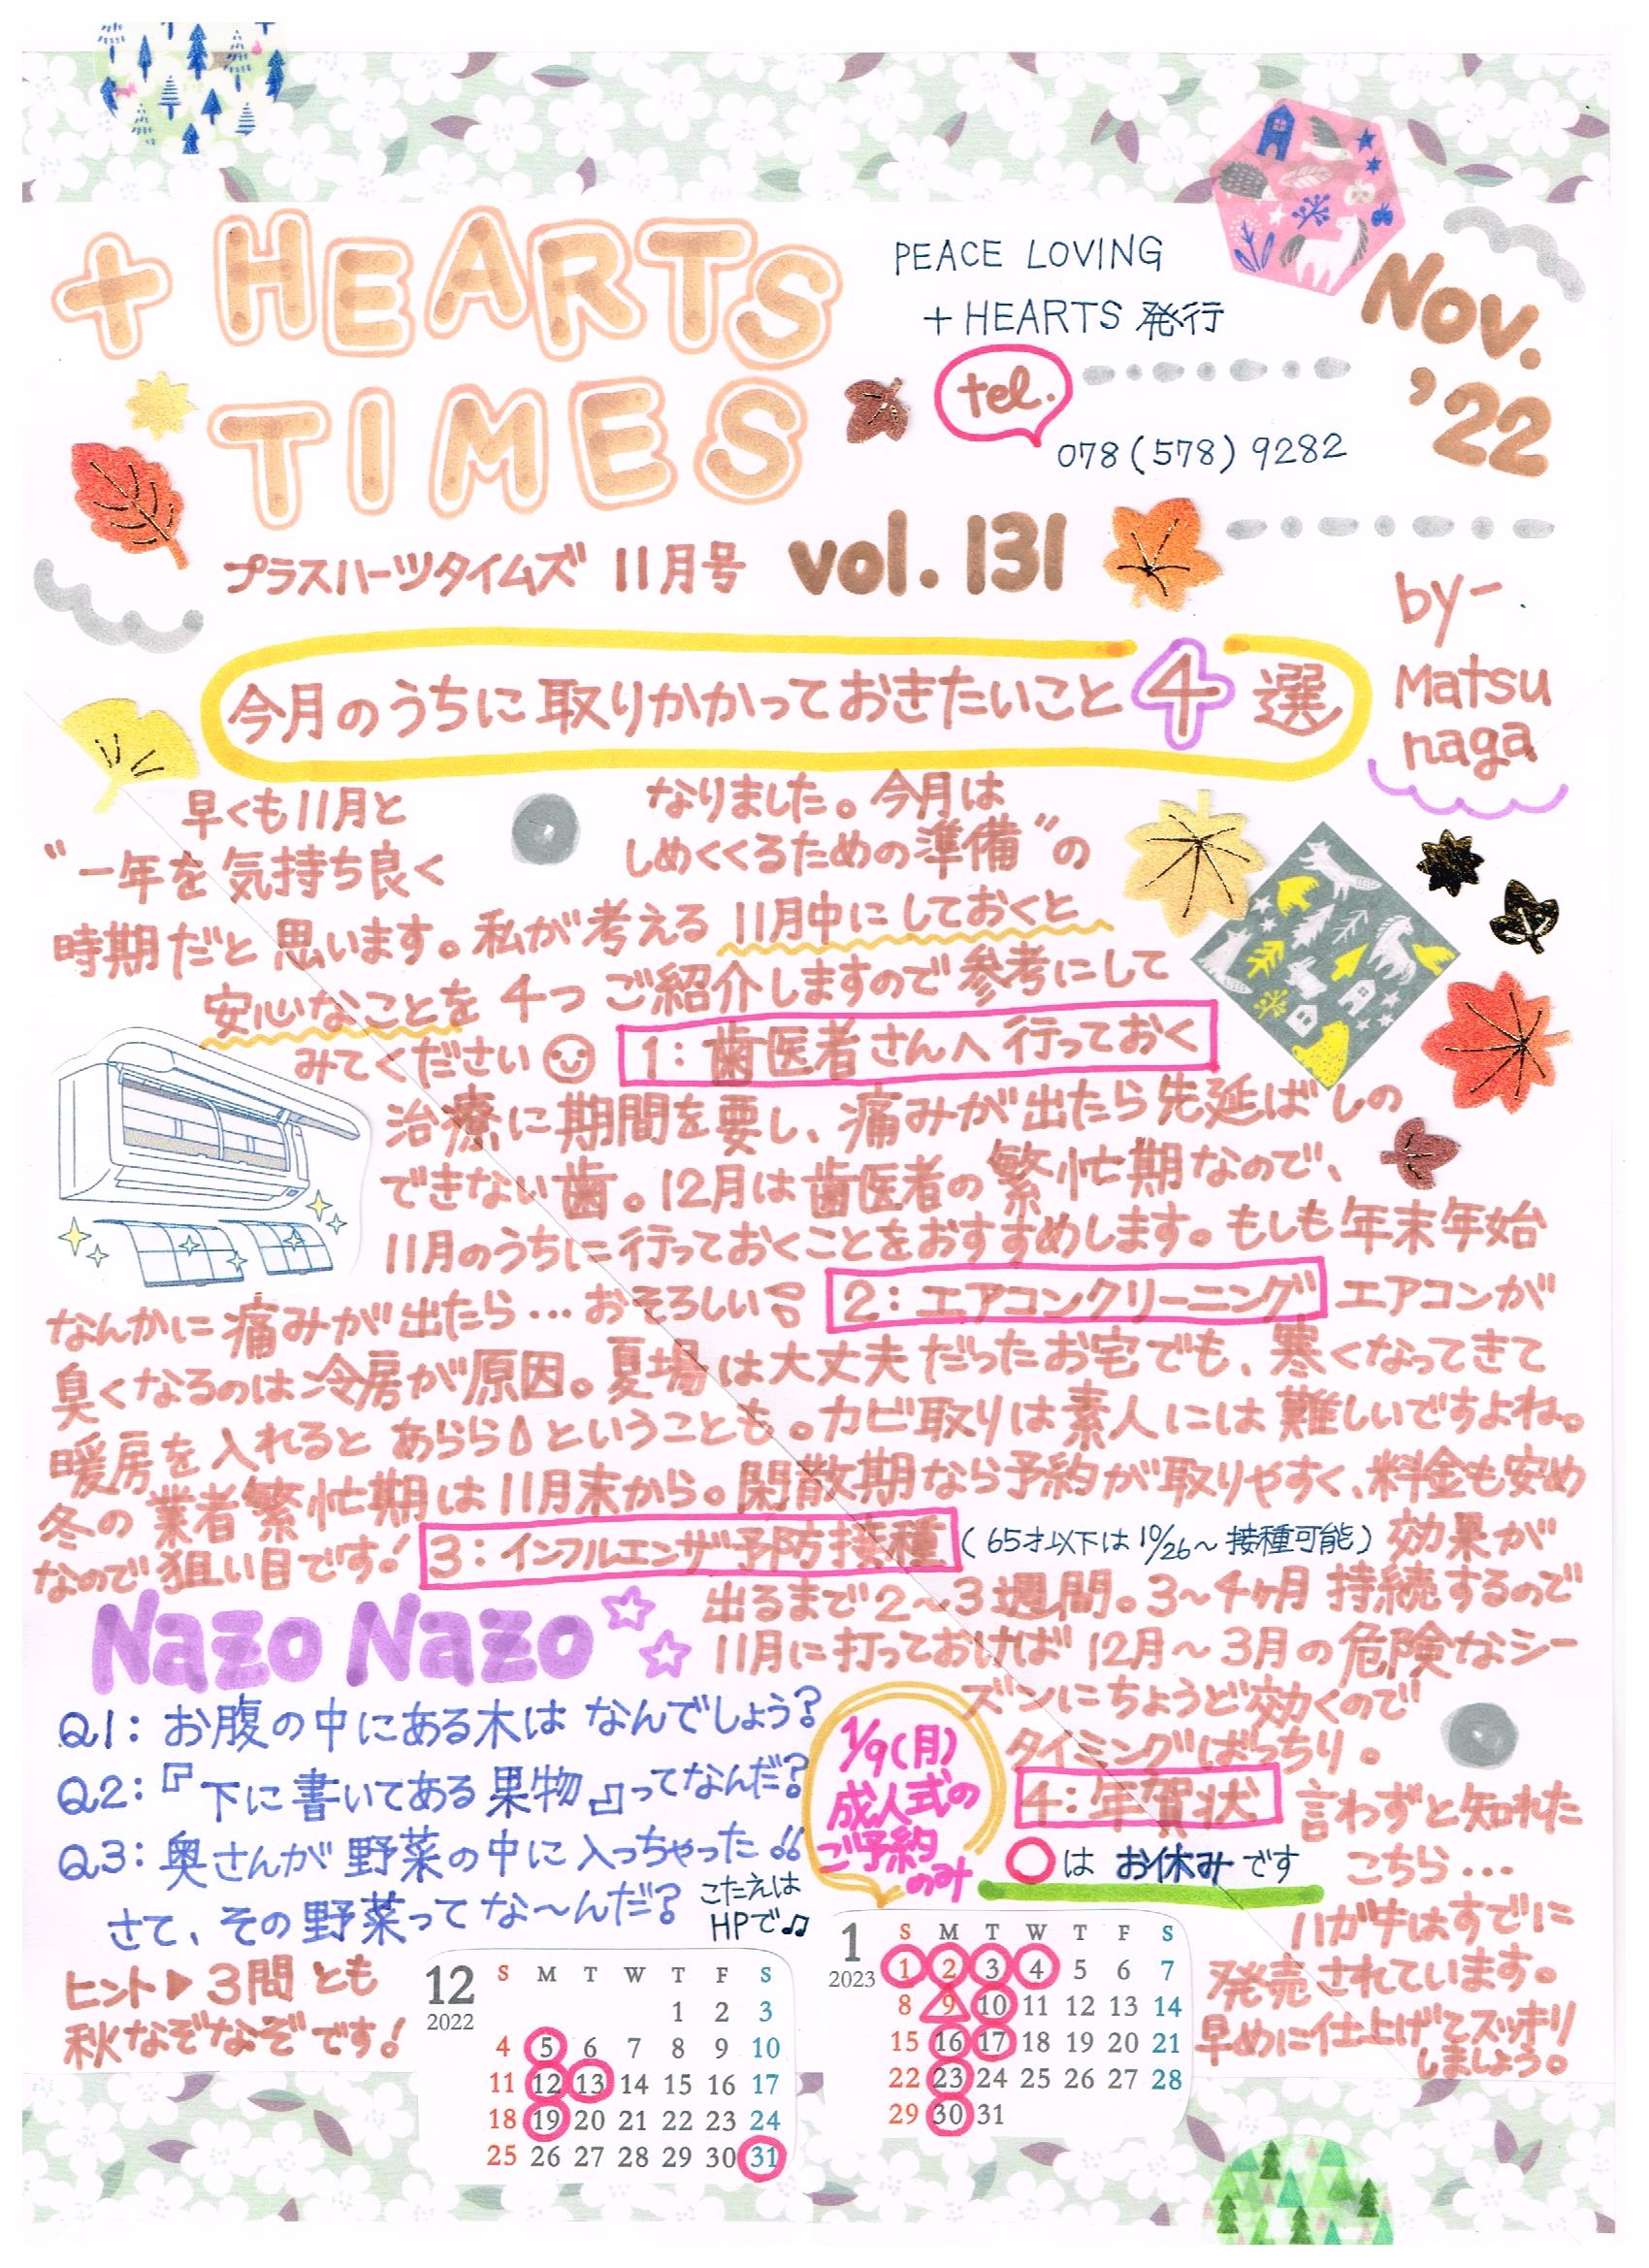 + HEARTS
TIMES
PEACE LOVING
+ HEARTS 発行
tel.
078(578)9282
Nov.
'22
プラスハーツタイムズ 11月号 vol. 131
by-
Matsu
naga
今月のうちに取りかかっておきたいこと4選
早くも11月と なりました。今月は
“一年を気持ち良く しめくくるための準備”の
時期だと思います。私が考える11月中にしておくと
安心なことを4つご紹介しますので参考にして
みてください 1:歯医者さんへ行っておく
治療に期間を要し、痛みが出たら先延ばしの
できない歯。12月は歯医者の繁忙期なので、
11月のうちに行っておくことをおすすめします。もしも年末年始
なんかに痛みが出たら…おそろしい 2:エアコンクリーニング エアコンが
臭くなるのは冷房が原因。夏場は大丈夫だったお宅でも、寒くなってきて
暖房を入れるとあららということも。カビ取りは素人には難しいですよね。
冬の業者繁忙期は11月末から。閑散期なら予約が取りやすく、料金も安め
なので狙い目です! 3:インフルエンザ予防接種 (65才以下は10/26~接種可能) 効果が
出るまで2~3週間。3~4ヶ月持続するので
11月に打っておけば12月~3月の危険なシー
ズンにちょうど効くので
タイミングばっちり。
4:年賀状 言わずと知れた
こちら…
ハガキはすでに
発売されています。
早めに仕上げてスッキリ
しましょう。
Nazo Nazo
Q1:お腹の中にある木はなんでしょう?
Q2:『下に書いてある果物』ってなんだ?
Q3:奥さんが野菜の中に入っちゃった!!
さて、その野菜ってな~んだ?
こたえは
HPで♫
ヒント▶3問とも
秋なぞなぞです!
1/9(月)
成人式の
ご予約
のみ
○は お休みです
12
2022
S M T W T F S
1 2 3
4 5 6 7 8 9 10
11 12 13 14 15 16 17
18 19 20 21 22 23 24
25 26 27 28 29 30 31
1
2023
S M T W T F S
1 2 3 4 5 6 7
8 9 10 11 12 13 14
15 16 17 18 19 20 21
22 23 24 25 26 27 28
29 30 31